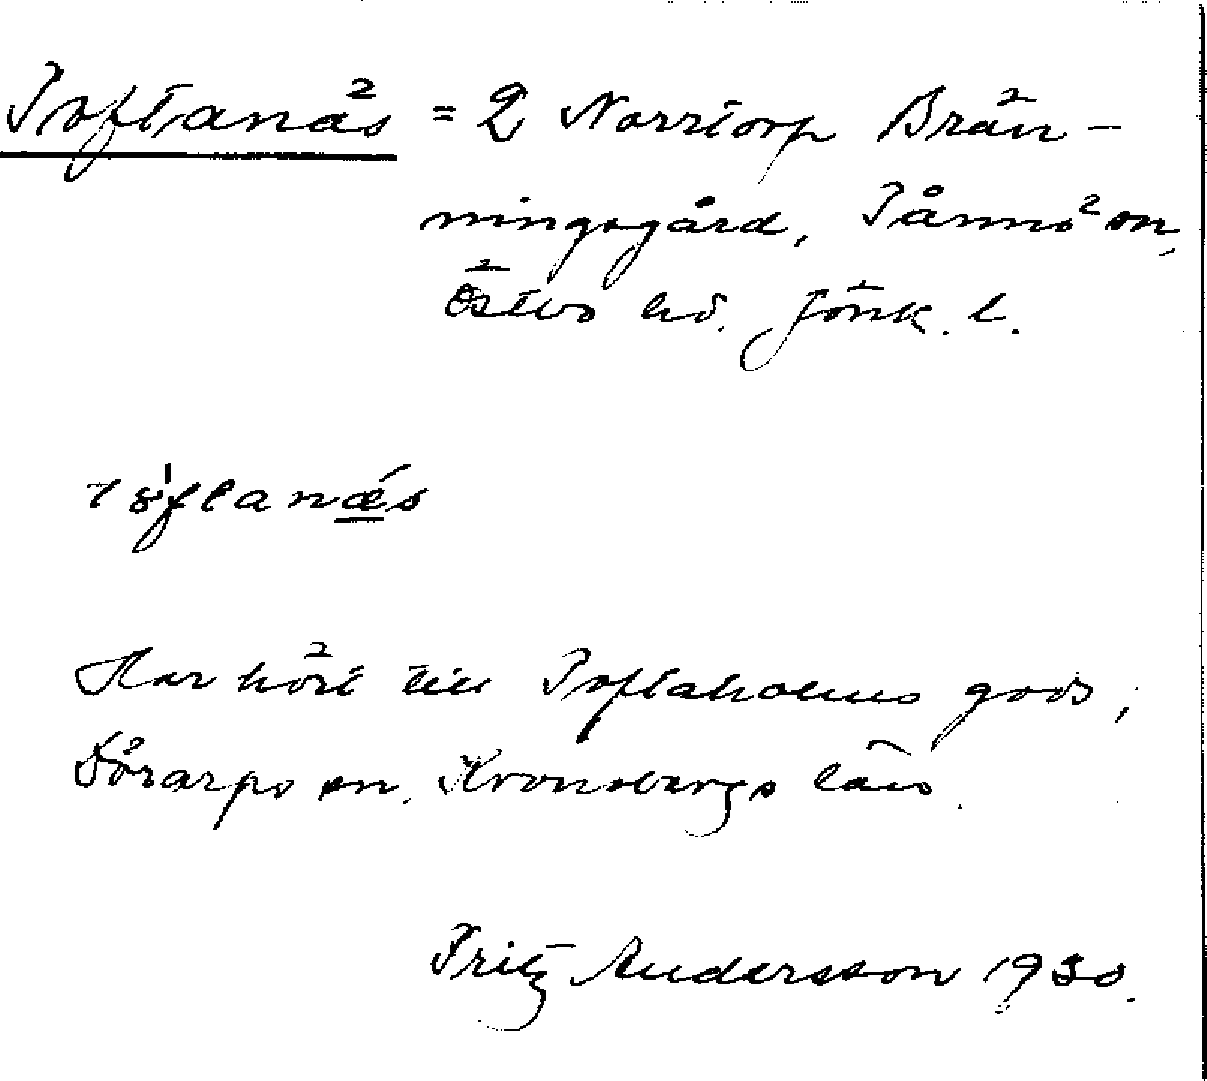 Toftanäs = 2 Norrtorp Brän-
ningsgård, Tånnö sn,
Östbo hd. Jönk. l.
Har hört till Toftaholms gods,
Dörarps sn. Kronobergs län.
Fritz Andersson 1930.